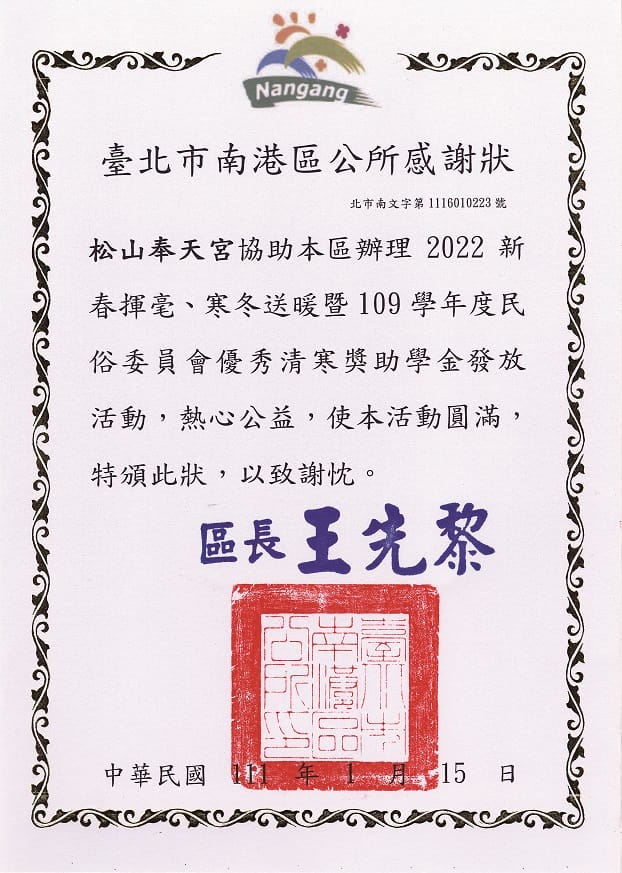 Nangang
臺北市南港區公所感謝狀
北市南文字第1116010223號
松山奉天宮協助本區辦理 2022 新
春揮毫、寒冬送暖暨 109 學年度民
俗委員會優秀清寒獎助學金發放
活動，熱心公益，使本活動圓滿，
特頒此狀，以致謝忱。
區長 王先黎
臺北市南港區公所印
中華民國 111 年 1 月 15 日